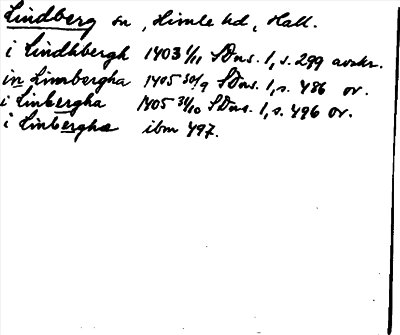 Lindberg sn, Himle hd, Hall.
i Lindhbergh 1403 1/11 SDns. 1, s. 299 avskr.
in Limbergha 1405 30/9 SDns. 1, s. 486 or.
i Linbergha 1405 31/10 SDns. 1, s. 496 or.
i Linbergha ibm 497.